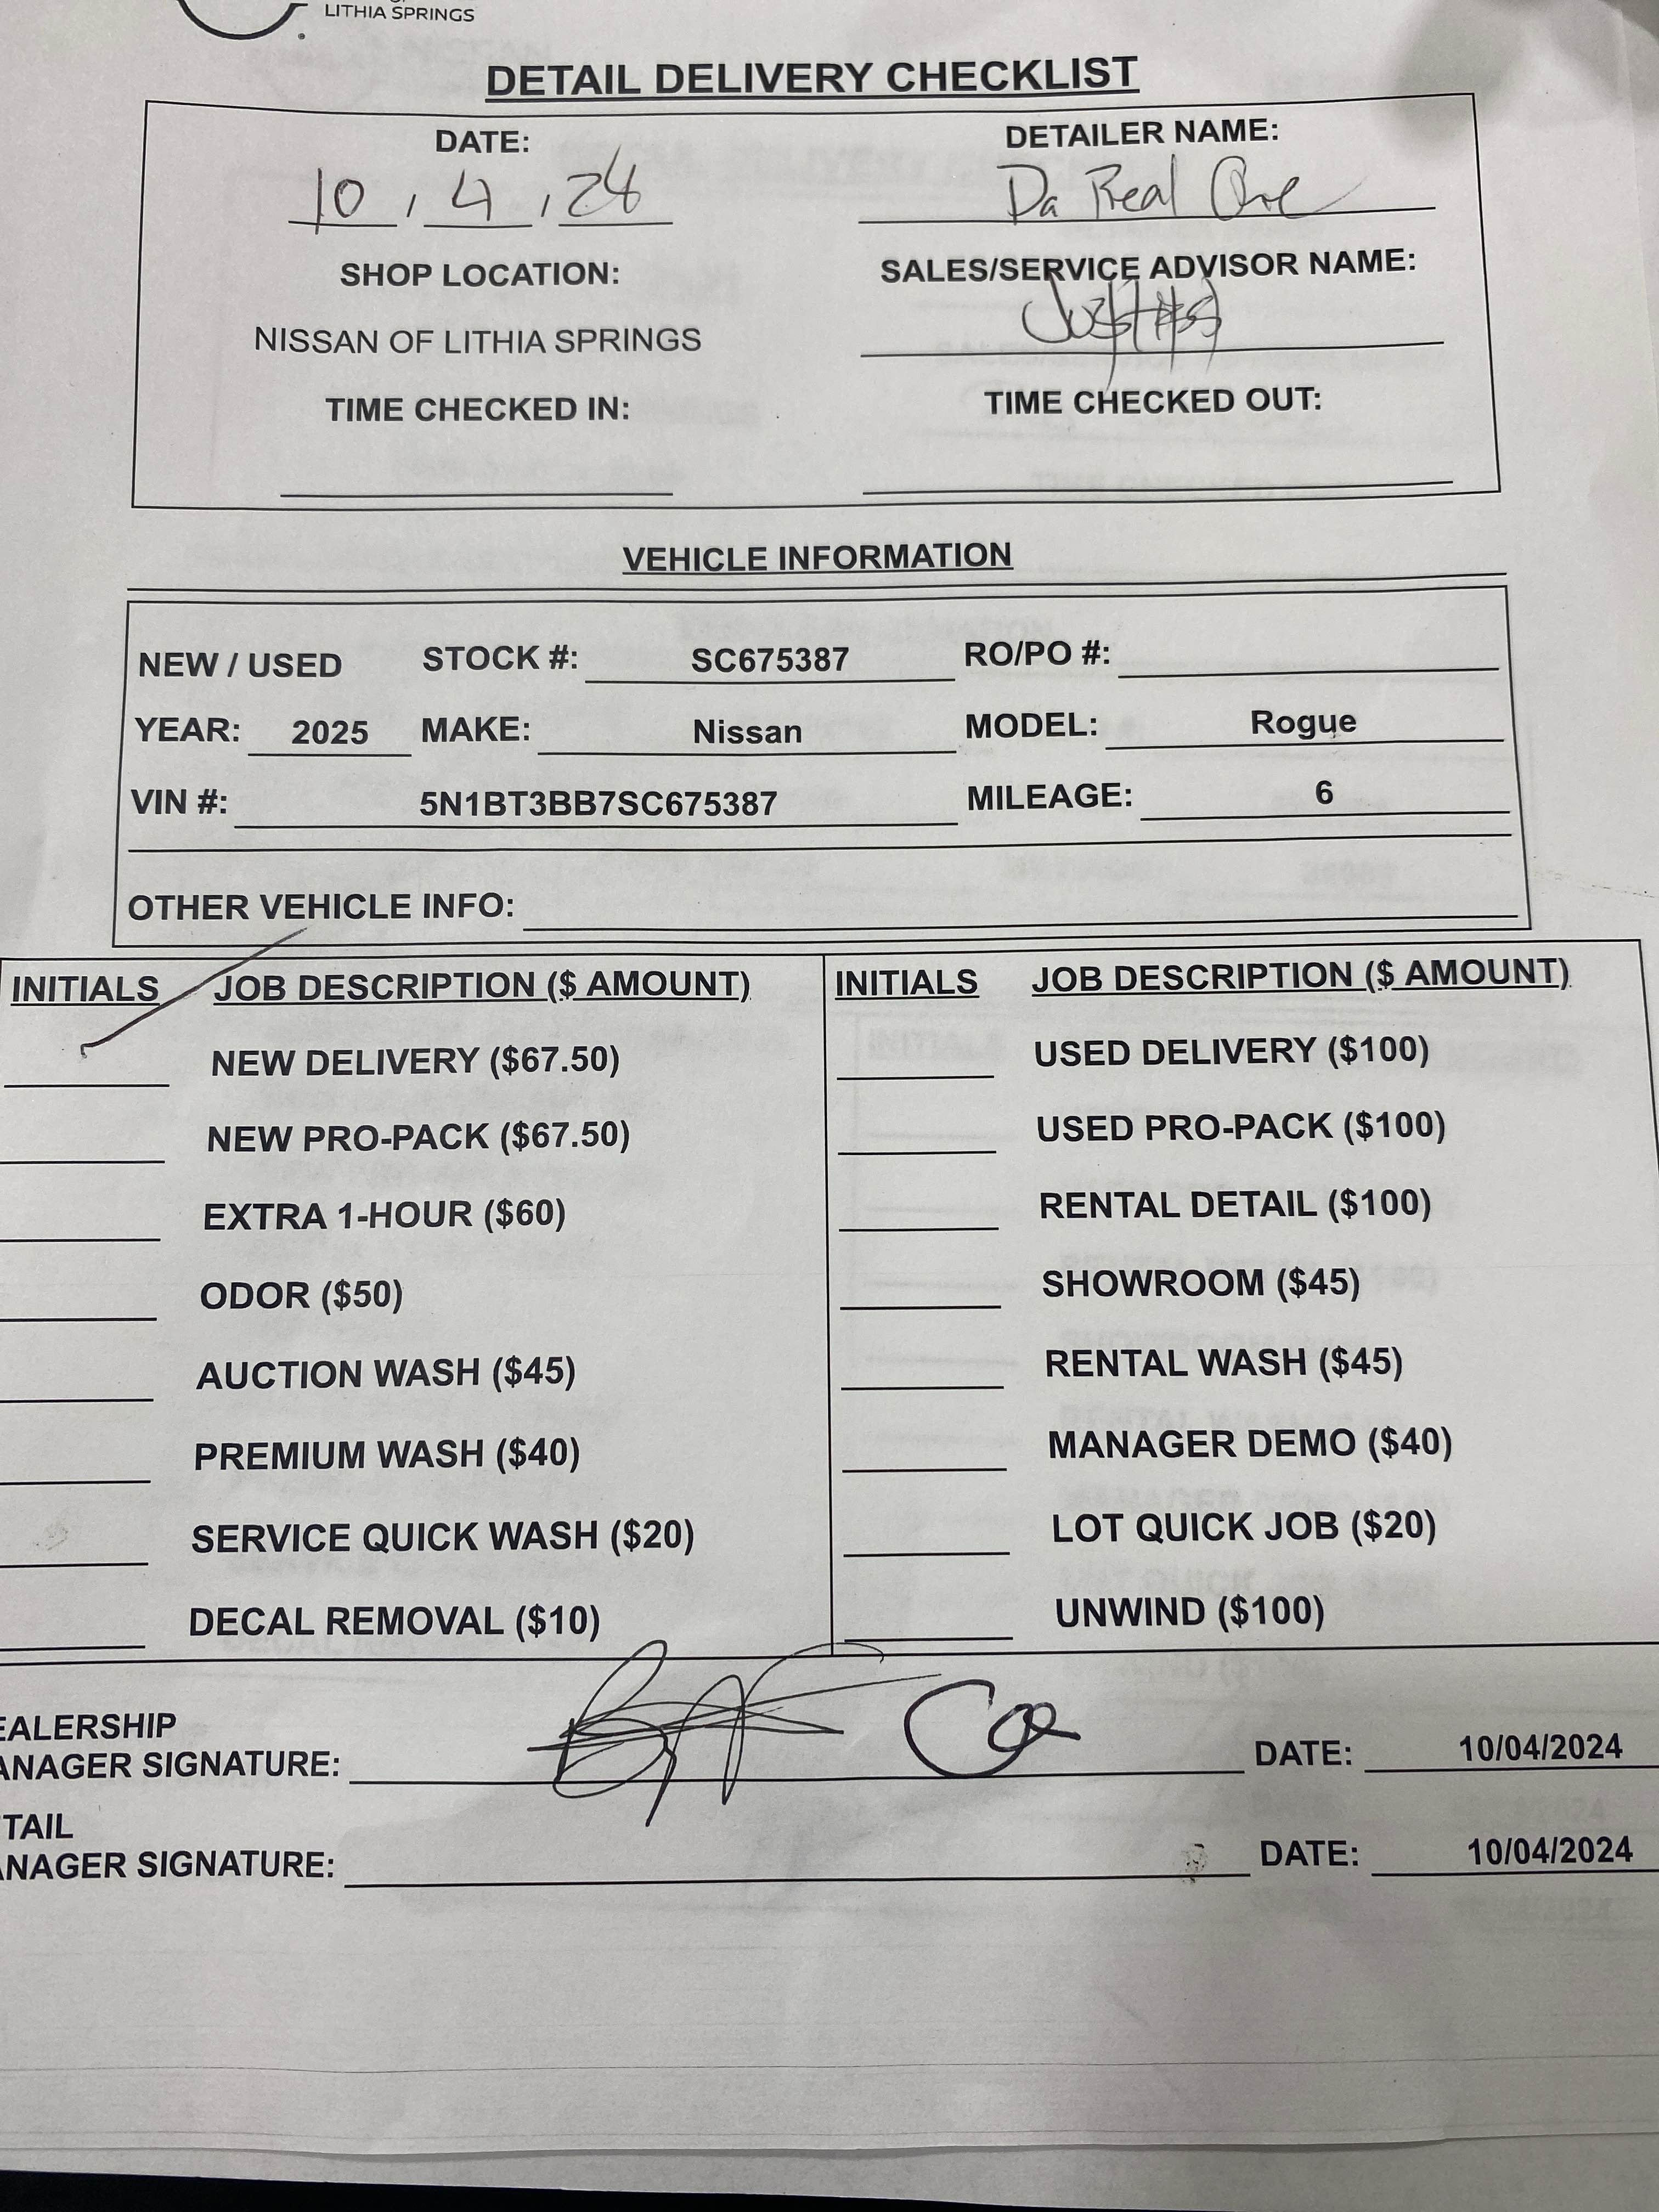 LITHIA SPRINGS
DETAIL DELIVERY CHECKLIST
DATE: DETAILER NAME:
10, 4, 24 Da Real One
SHOP LOCATION: SALES/SERVICE ADVISOR NAME:
NISSAN OF LITHIA SPRINGS
TIME CHECKED IN: TIME CHECKED OUT:
VEHICLE INFORMATION
NEW / USED STOCK #: SC675387 RO/PO #:
YEAR: 2025 MAKE: Nissan MODEL: Rogue
VIN #: 5N1BT3BB7SC675387 MILEAGE: 6
OTHER VEHICLE INFO:
INITIALS JOB DESCRIPTION ($ AMOUNT) INITIALS JOB DESCRIPTION ($ AMOUNT)
NEW DELIVERY ($67.50) USED DELIVERY ($100)
NEW PRO-PACK ($67.50) USED PRO-PACK ($100)
EXTRA 1-HOUR ($60) RENTAL DETAIL ($100)
ODOR ($50) SHOWROOM ($45)
AUCTION WASH ($45) RENTAL WASH ($45)
PREMIUM WASH ($40) MANAGER DEMO ($40)
SERVICE QUICK WASH ($20) LOT QUICK JOB ($20)
DECAL REMOVAL ($10) UNWIND ($100)
EALERSHIP
ANAGER SIGNATURE: DATE: 10/04/2024
TAIL
ANAGER SIGNATURE: DATE: 10/04/2024